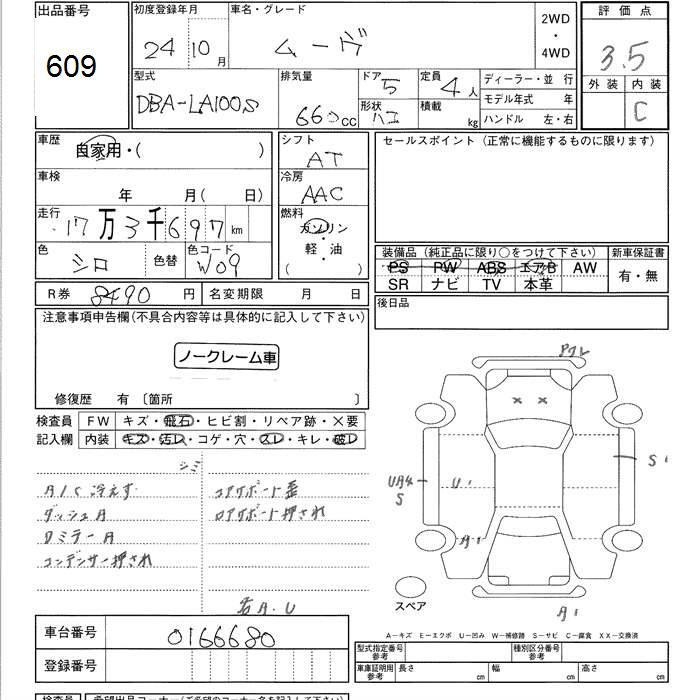 出品番号
609
初度登録年月
24 10 月
車名・グレード
ムーヴ
2WD
・
4WD
評価点
3.5
外装 内装
C
型式
DBA-LA100S
排気量
660cc
ドア
5
形状
ハコ
定員
4人
積載
kg
ディーラー・並 行
モデル年式 年
ハンドル 左・右
車歴
自家用・( )
シフト
AT
セールスポイント (正常に機能するものに限ります)
車検
年 月( 日)
冷房
AAC
走行
17万3千697km
燃料
ガソリン
・
軽・油
( )
色
シロ
色替
色コード
W09
装備品 (純正品に限り○をつけて下さい)
PS PW ABS エアB AW
SR ナビ TV 本革
新車保証書
有・無
R券 8490 円
名変期限 月 日
後日品
注意事項申告欄(不具合内容等は具体的に記入して下さい)
ノークレーム車
修復歴 有 〔箇所 〕
検査員
記入欄
FW キズ・飛石・ヒビ割・リペア跡・×要
内装 キズ・汚レ・コゲ・穴・スレ・キレ・破レ
シミ
A/C冷えず
ダッシュA
ロミラーA
コンデンサー押され
コアサポート歪
ロアサポート押され
右A.U
アワレ
UA4
S
U1
S1
A1
A1
スペア
A−キズ E−エクボ U−凹み W−補修跡 S−サビ C−腐食 XX−交換済
車台番号
0166680
登録番号
型式指定番号
参考
種別区分番号
参考
車庫証明用
参考
長さ cm
幅 cm
高さ cm